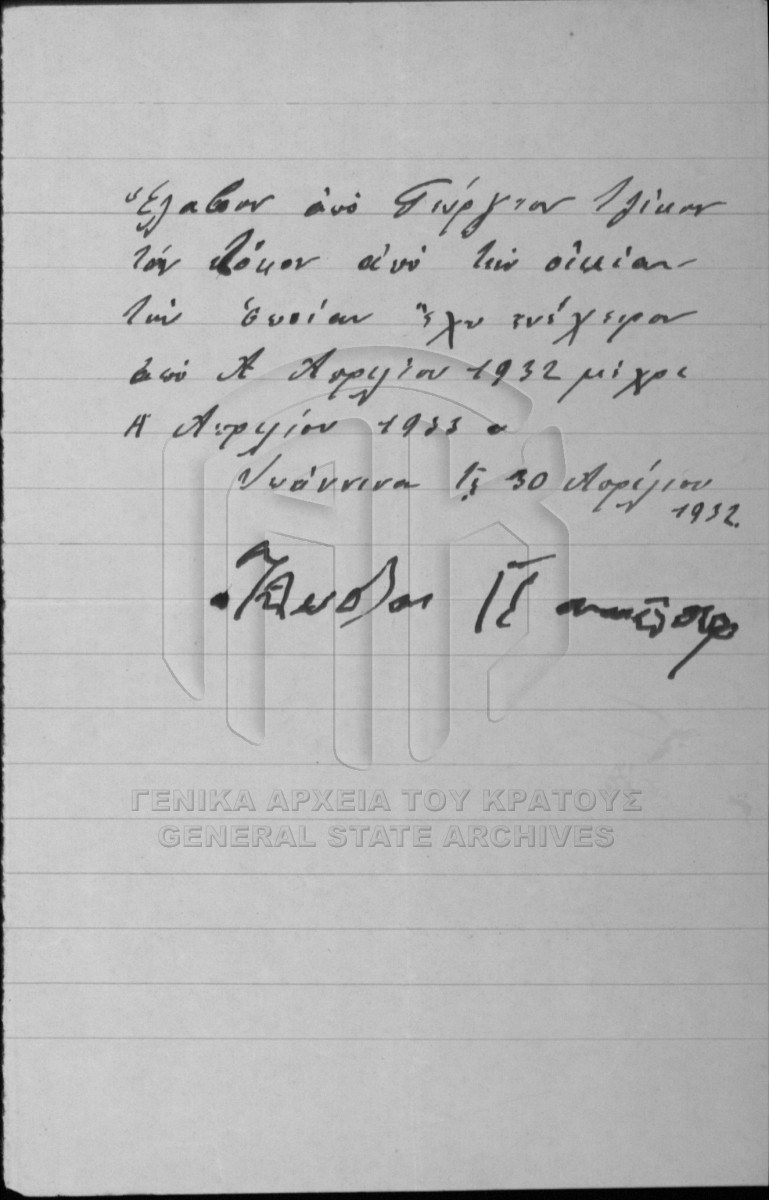 Ἔλαβον ἀπό Γεώργιον
τόν τόκον ἀπό τήν οἰκίαν
τήν ὁποίαν ἔχω ἐνέχειρον
ἀπό Α Απριλίου 1932 μέχρι
Α Απριλίου 1933
Ἰωάννινα τῇ 30 Απριλίου
1932.
ΓΕΝΙΚΑ ΑΡΧΕΙΑ ΤΟΥ ΚΡΑΤΟΥΣ
GENERAL STATE ARCHIVES